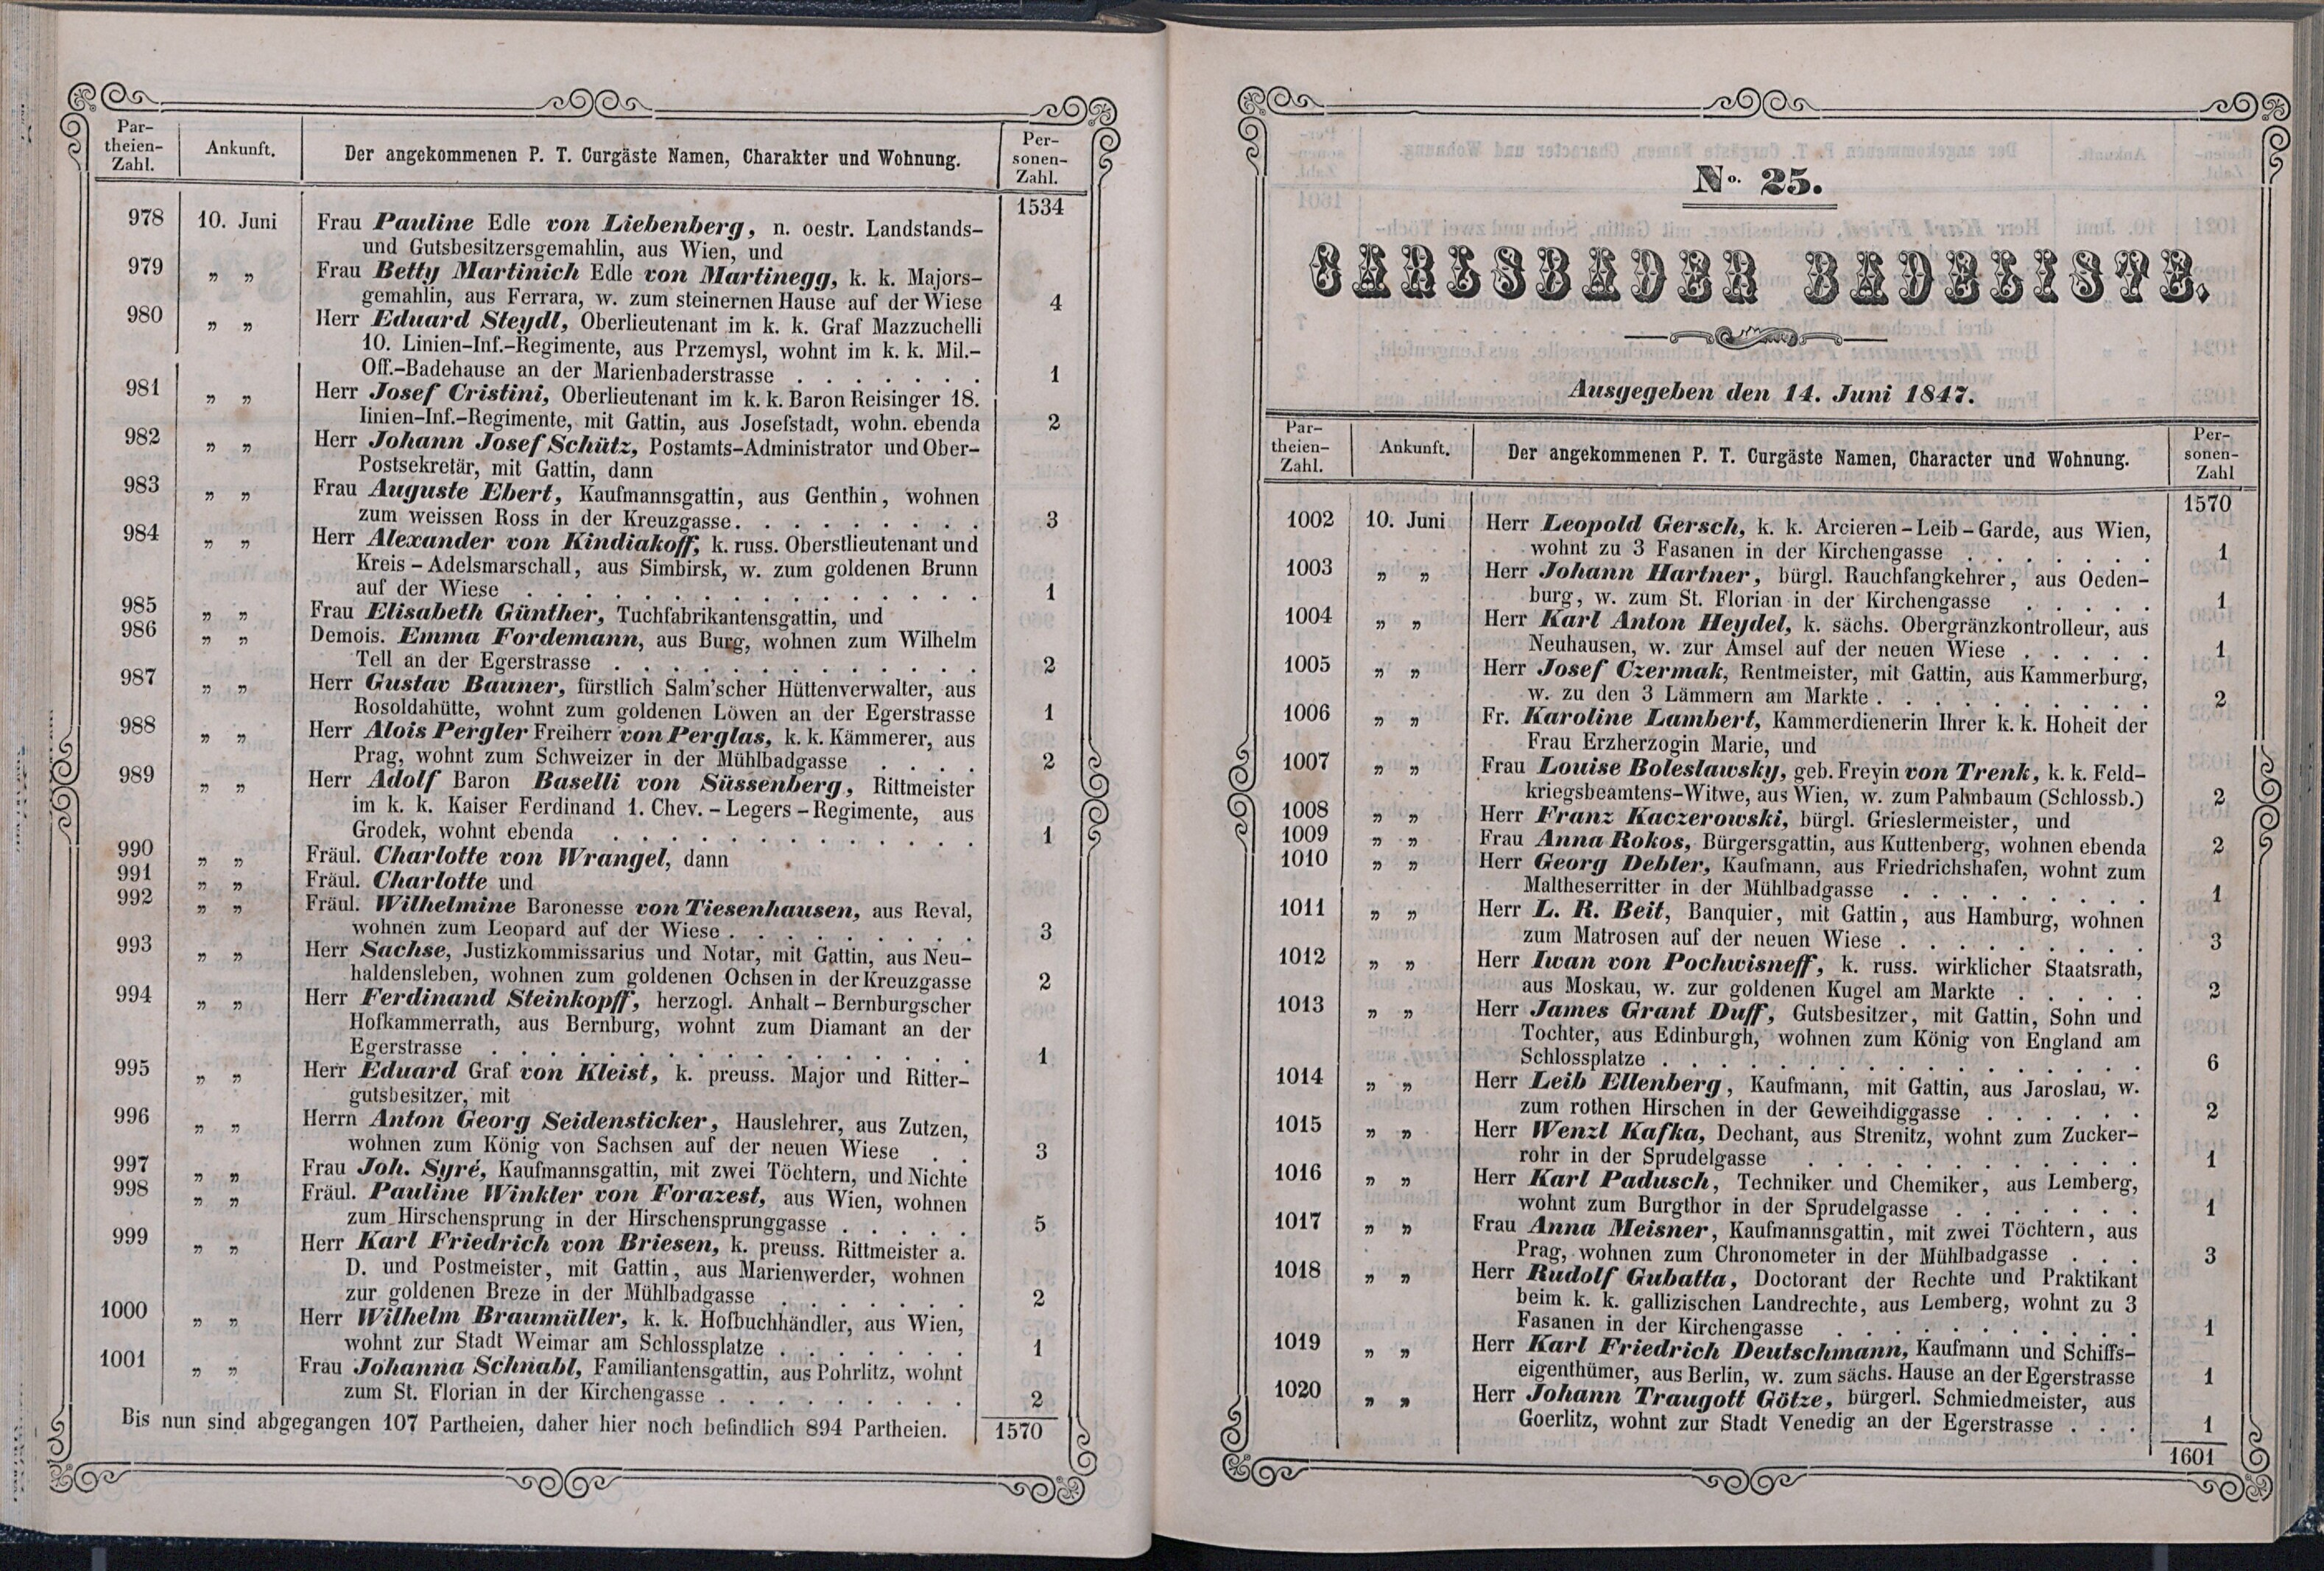 Par-
theien-
Zahl.
Ankunft.
Der angekommenen P. T. Curgäste Namen, Charakter und Wohnung.
Per-
sonen-
Zahl.
1534
978 10. Juni Frau Pauline Edle von Liebenberg, n. oestr. Landstands-
und Gutsbesitzersgemahlin, aus Wien, und
979 „ „ Frau Betty Martinich Edle von Martinegg, k. k. Majors-
gemahlin, aus Ferrara, w. zum steinernen Hause auf der Wiese 4
980 „ „ Herr Eduard Steydl, Oberlieutenant im k. k. Graf Mazzuchelli
10. Linien-Inf.-Regimente, aus Przemysl, wohnt im k. k. Mil.-
Off.-Badehause an der Marienbaderstrasse . . . . . . . 1
981 „ „ Herr Josef Cristini, Oberlieutenant im k. k. Baron Reisinger 18.
linien-Inf.-Regimente, mit Gattin, aus Josefstadt, wohn. ebenda 2
982 „ „ Herr Johann Josef Schütz, Postamts-Administrator und Ober-
Postsekretär, mit Gattin, dann
983 „ „ Frau Auguste Ebert, Kaufmannsgattin, aus Genthin, wohnen
zum weissen Ross in der Kreuzgasse . . . . . . . . . 3
984 „ „ Herr Alexander von Kindiakoff, k. russ. Oberstlieutenant und
Kreis-Adelsmarschall, aus Simbirsk, w. zum goldenen Brunn
auf der Wiese . . . . . . . . . . . . . . . . 1
985 „ „ Frau Elisabeth Günther, Tuchfabrikantensgattin, und
986 „ „ Demois. Emma Fordemann, aus Burg, wohnen zum Wilhelm
Tell an der Egerstrasse . . . . . . . . . . . . . 2
987 „ „ Herr Gustav Bauner, fürstlich Salm'scher Hüttenverwalter, aus
Rosoldahütte, wohnt zum goldenen Löwen an der Egerstrasse 1
988 „ „ Herr Alois Pergler Freiherr von Perglas, k. k. Kämmerer, aus
Prag, wohnt zum Schweizer in der Mühlbadgasse . . . . 2
989 „ „ Herr Adolf Baron Baselli von Süssenberg, Rittmeister
im k. k. Kaiser Ferdinand 1. Chev.-Legers-Regimente, aus
Grodek, wohnt ebenda . . . . . . . . . . . . . 1
990 „ „ Fräul. Charlotte von Wrangel, dann
991 „ „ Fräul. Charlotte und
992 „ „ Fräul. Wilhelmine Baronesse von Tiesenhausen, aus Reval,
wohnen zum Leopard auf der Wiese . . . . . . . . . 3
993 „ „ Herr Sachse, Justizkommissarius und Notar, mit Gattin, aus Neu-
haldensleben, wohnen zum goldenen Ochsen in der Kreuzgasse 2
994 „ „ Herr Ferdinand Steinkopff, herzogl. Anhalt-Bernburgscher
Hofkammerrath, aus Bernburg, wohnt zum Diamant an der
Egerstrasse . . . . . . . . . . . . . . . . . 1
995 „ „ Herr Eduard Graf von Kleist, k. preuss. Major und Ritter-
gutsbesitzer, mit
996 „ „ Herrn Anton Georg Seidensticker, Hauslehrer, aus Zutzen,
wohnen zum König von Sachsen auf der neuen Wiese . . 3
997 „ „ Frau Joh. Syré, Kaufmannsgattin, mit zwei Töchtern, und Nichte
998 „ „ Fräul. Pauline Winkler von Forazest, aus Wien, wohnen
zum Hirschensprung in der Hirschensprunggasse . . . . . 5
999 „ „ Herr Karl Friedrich von Briesen, k. preuss. Rittmeister a.
D. und Postmeister, mit Gattin, aus Marienwerder, wohnen
zur goldenen Breze in der Mühlbadgasse . . . . . . . 2
1000 „ „ Herr Wilhelm Braumüller, k. k. Hofbuchhändler, aus Wien,
wohnt zur Stadt Weimar am Schlossplatze . . . . . . . 1
1001 „ „ Frau Johanna Schnabl, Familiantensgattin, aus Pohrlitz, wohnt
zum St. Florian in der Kirchengasse . . . . . . . . . 2
Bis nun sind abgegangen 107 Partheien, daher hier noch befindlich 894 Partheien. 1570
No. 25.
CARLSBADER BADELISTE.
Ausgegeben den 14. Juni 1847.
Par-
theien-
Zahl.
Ankunft.
Der angekommenen P. T. Curgäste Namen, Character und Wohnung.
Per-
sonen-
Zahl
1570
1002 10. Juni Herr Leopold Gersch, k. k. Arcieren-Leib-Garde, aus Wien,
wohnt zu 3 Fasanen in der Kirchengasse . . . . . . . 1
1003 „ „ Herr Johann Hartner, bürgl. Rauchfangkehrer, aus Oeden-
burg, w. zum St. Florian in der Kirchengasse . . . . . 1
1004 „ „ Herr Karl Anton Heydel, k. sächs. Obergränzkontrolleur, aus
Neuhausen, w. zur Amsel auf der neuen Wiese . . . . . 1
1005 „ „ Herr Josef Czermak, Rentmeister, mit Gattin, aus Kammerburg,
w. zu den 3 Lämmern am Markte . . . . . . . . . . 2
1006 „ „ Fr. Karoline Lambert, Kammerdienerin Ihrer k. k. Hoheit der
Frau Erzherzogin Marie, und
1007 „ „ Frau Louise Boleslawsky, geb. Freyin von Trenk, k. k. Feld-
kriegsbeamtens-Witwe, aus Wien, w. zum Palmbaum (Schlossb.) 2
1008 „ „ Herr Franz Kaczerowski, bürgl. Grieslermeister, und
1009 „ „ Frau Anna Rokos, Bürgersgattin, aus Kuttenberg, wohnen ebenda 2
1010 „ „ Herr Georg Debler, Kaufmann, aus Friedrichshafen, wohnt zum
Maltheserritter in der Mühlbadgasse . . . . . . . . . 1
1011 „ „ Herr L. R. Beit, Banquier, mit Gattin, aus Hamburg, wohnen
zum Matrosen auf der neuen Wiese . . . . . . . . . 3
1012 „ „ Herr Iwan von Pochwisneff, k. russ. wirklicher Staatsrath,
aus Moskau, w. zur goldenen Kugel am Markte . . . . . 2
1013 „ „ Herr James Grant Duff, Gutsbesitzer, mit Gattin, Sohn und
Tochter, aus Edinburgh, wohnen zum König von England am
Schlossplatze . . . . . . . . . . . . . . . . . 6
1014 „ „ Herr Leib Ellenberg, Kaufmann, mit Gattin, aus Jaroslau, w.
zum rothen Hirschen in der Geweihdiggasse . . . . . . 2
1015 „ „ Herr Wenzl Kafka, Dechant, aus Strenitz, wohnt zum Zucker-
rohr in der Sprudelgasse . . . . . . . . . . . . 1
1016 „ „ Herr Karl Padusch, Techniker und Chemiker, aus Lemberg,
wohnt zum Burgthor in der Sprudelgasse . . . . . . . 1
1017 „ „ Frau Anna Meisner, Kaufmannsgattin, mit zwei Töchtern, aus
Prag, wohnen zum Chronometer in der Mühlbadgasse . . . 3
1018 „ „ Herr Rudolf Gubatta, Doctorant der Rechte und Praktikant
beim k. k. gallizischen Landrechte, aus Lemberg, wohnt zu 3
Fasanen in der Kirchengasse . . . . . . . . . . . 1
1019 „ „ Herr Karl Friedrich Deutschmann, Kaufmann und Schiffs-
eigenthümer, aus Berlin, w. zum sächs. Hause an der Egerstrasse 1
1020 „ „ Herr Johann Traugott Götze, bürgerl. Schmiedmeister, aus
Goerlitz, wohnt zur Stadt Venedig an der Egerstrasse . . . 1
1601